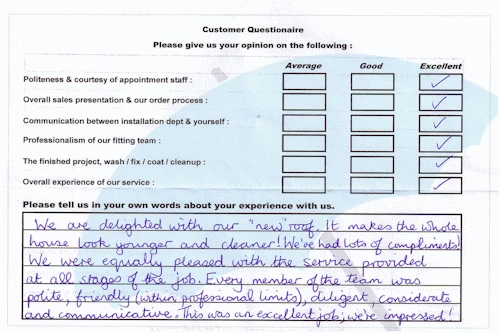 Customer Questionaire
Please give us your opinion on the following :
Average Good Excellent
Politeness & courtesy of appointment staff :
Overall sales presentation & our order process :
Communication between installation dept & yourself :
Professionalism of our fitting team :
The finished project, wash / fix / coat / cleanup :
Overall experience of our service :
Please tell us in your own words about your experience with us.
We are delighted with our "new" roof. It makes the whole
house look younger and cleaner! We've had lots of compliments!
We were equally pleased with the service provided
at all stages of the job. Every member of the team was
polite, friendly (within professional limits), diligent considerate
and communicative. This was an excellent job; we're impressed!